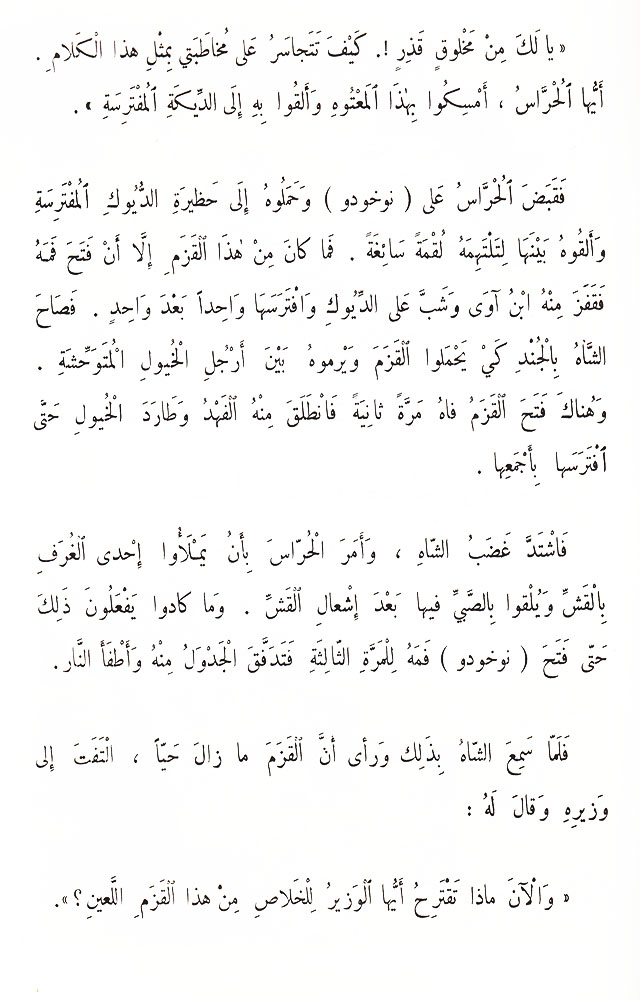 « يا لَكَ مِنْ مَخْلوقٍ قَذِرٍ !. كَيْفَ تَتَجاسَرُ عَلى مُخاطَبَتي بِمِثْلِ هذا الْكَلامِ .
أَيُّها ٱلْحُرَّاسُ ، أَمْسِكُوا بِهٰذَا ٱلْمَعْتُوهِ وَأَلْقُوا بِهِ إِلَى الدِّيكَةِ ٱلْمُفْتَرِسَةِ » .
فَقَبَضَ ٱلْحُرَّاسُ عَلى ( نوخودو ) وَحَمَلُوهُ إِلَى حَظيرَةِ الدُّيُوكِ ٱلْمُفْتَرِسَةِ
وَأَلْقُوهُ بَيْنَهَا لِتَلْتَهِمَهُ لُقْمَةً سَائِغَةً . فَما كانَ مِنْ هٰذَا ٱلْقَزَمِ إِلَّا أَنْ فَتَحَ فَمَهُ
فَقَفَزَ مِنْهُ ابْنُ آوَى وَشَبَّ عَلى الدِّيُوكِ وَافْتَرَسَهَا وَاحِداً بَعْدَ وَاحِدٍ . فَصَاحَ
الشَّاهُ بِالْجُنْدِ كَيْ يَحْمَلوا ٱلْقَزَمَ وَيْرموهُ بَيْنَ أَرْجُلِ الْخُيولِ الْمُتَوَحِّشَةِ .
وَهُناكَ فَتَحَ ٱلْقَزَمُ فاهُ مَرَّةً ثانِيَةً فَانْطَلَقَ مِنْهُ ٱلْفَهْدُ وَطَارَدَ الْخُيولِ حَتَّى
ٱفْتَرَسَها بِأَجْمَعِها .
فَاشْتَدَّ غَضَبُ الشّاهِ ، وَأَمَرَ الْحُرّاسَ بِأَنْ يَمْلَأُوا إِحْدى ٱلْغُرَفِ
بِالْقَشِّ وَيُلْقوا بِالصَّبِيِّ فيها بَعْدَ إِشْعالِ ٱلْقَشِّ . وَما كادوا يَفْعَلُونَ ذَلِكَ
حَتّى فَتَحَ ( نوخودو ) فَمَهُ لِلْمَرَّةِ الثّالِثَةِ فَتَدَفَّقَ الْجَدْوَلُ مِنْهُ وَأَطْفَأَ النَّار .
فَلَمّا سَمِعَ الشّاهُ بِذَلِك وَرأى أَنَّ ٱلْقَزَمَ ما زالَ حَيّاً ، الْتَفَتَ إلى
وَزيرِهِ وَقالَ لَهُ :
« وَالْآنَ ماذا تَقْتَرِحُ أَيُّها ٱلْوَزيرُ لِلْخَلاصِ مِنْ هذا ٱلْقَزَمِ اللَّعينِ ؟ » .